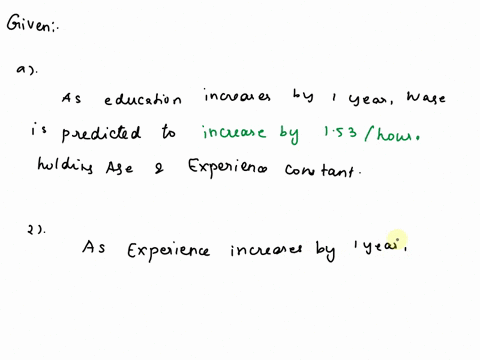 Given:.
a).
As education increases by 1 year, Wage
is predicted to increase by 1.53/hour.
holding Age & Experience constant.
2).
As Experience increases by 1 year,